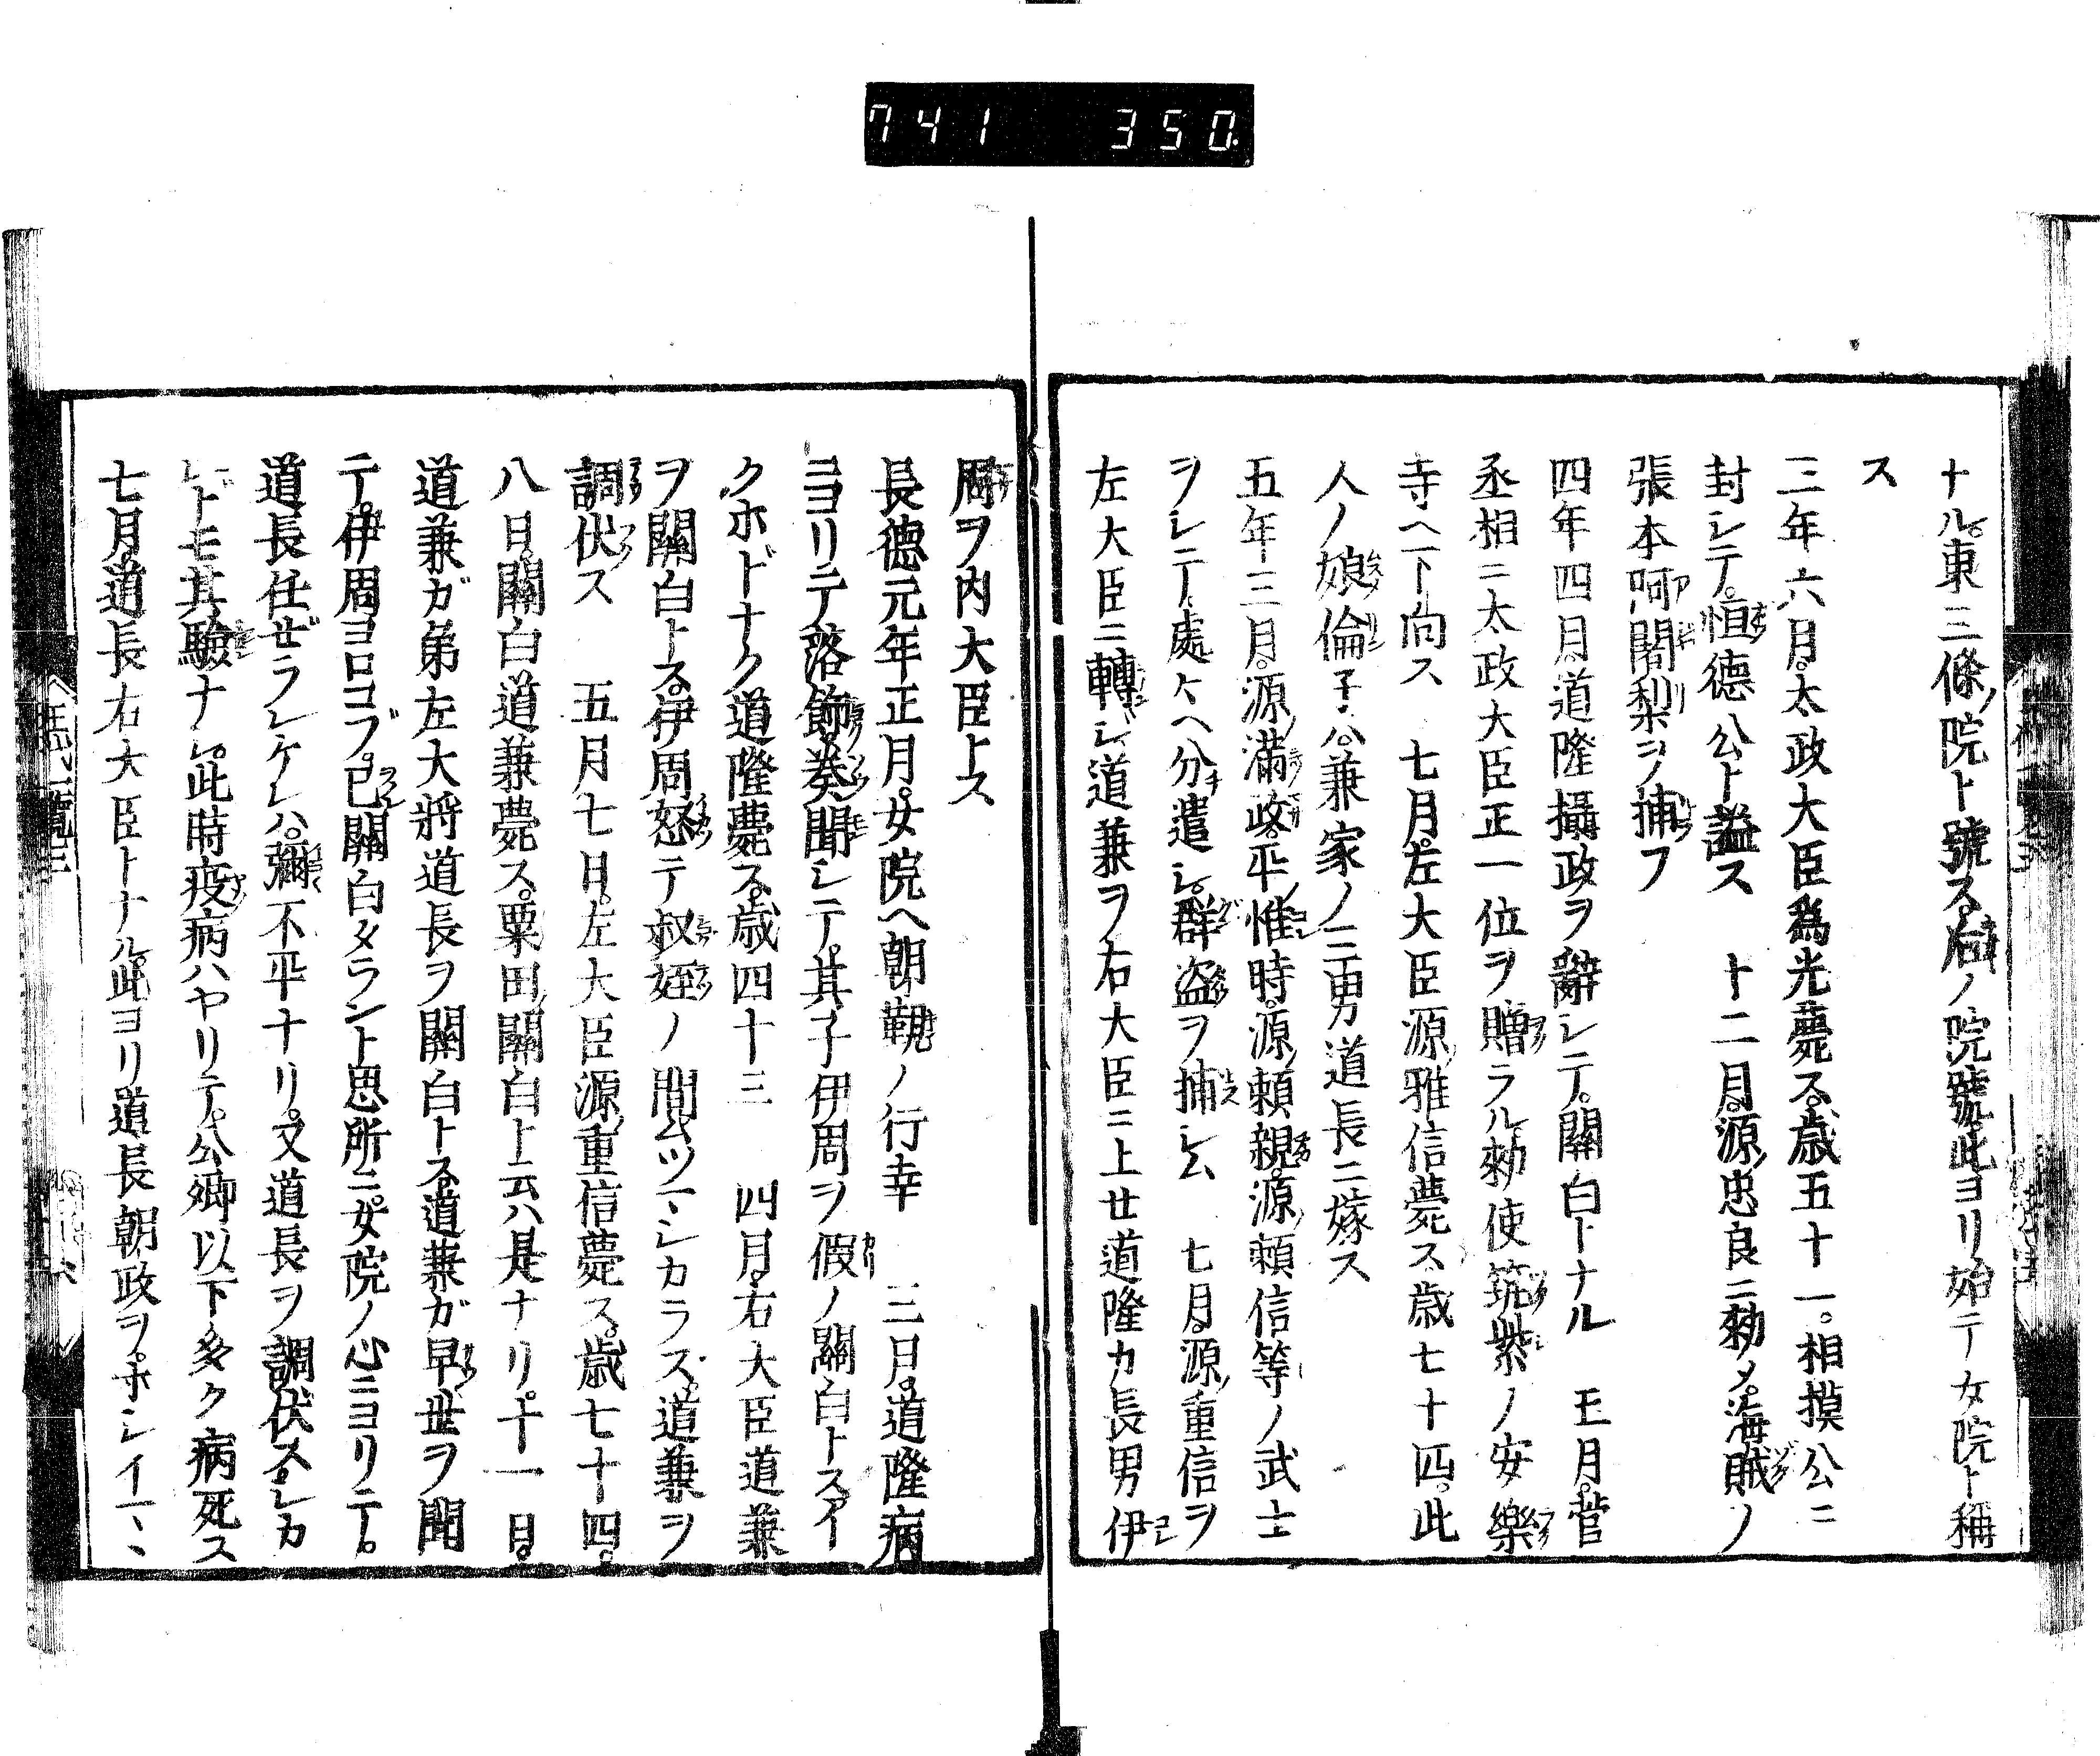 741 350
ナル。東三條ノ院ト號ス。后ノ院號。此ヨリ始テ女院ト稱
ス
三年六月。太政大臣爲光薨ス。歳五十一。相摸公ニ
封シテ。恒德公ト謚ス 十二月。源ノ忠良ニ勅メ。海賊ノ
張本阿闍梨ヲ捕フ
四年四月。道隆攝政ヲ辭シテ。關白トナル 五月。菅
丞相ニ太政大臣正一位ヲ贈ラル。勅使筑紫ノ安樂
寺ヘ下向ス 七月。左大臣源ノ雅信薨ス。歳七十四。此
人ノ娘倫子ハ。兼家ノ三男道長ニ嫁ス
五年三月。源ノ滿政。平ノ惟時。源ノ賴親。源ノ賴信等ノ武士
ヲシテ。處々ヘ分遣シ。群盜ヲ捕シム 七月。源ノ重信ヲ
左大臣ニ轉シ。道兼ヲ右大臣ニ上セ。道隆カ長男伊
周ヲ内大臣トス
長德元年正月。女院ヘ朝覲ノ行幸 三月。道隆病
ニヨリテ落飾。奏聞シテ。其子伊周ヲ假ノ關白トス。イ
クホドナク道隆薨ス。歳四十三 四月。右大臣道兼
ヲ關白トス。伊周怒テ叔姪ノ間ムツマシカラズ。道兼ヲ
調伏ス 五月七日。左大臣源ノ重信薨ス。歳七十四。
八日。關白道兼薨ス。粟田ノ關白ト云ハ是ナリ。十一日。
道兼ガ弟左大將道長ヲ關白トス。道兼ガ早世ヲ聞
テ。伊周ヨロコブ。已關白タラント思所ニ。女院ノ心ニヨリテ。
道長任ゼラレケレハ。彌不平ナリ。又道長ヲ調伏スレ𪜈
レトモ其驗ナシ。此時疫病ハヤリテ。公卿以下多ク病死ス
七月。道長右大臣トナル。此ヨリ道長朝政ヲ。ホシイマヽ